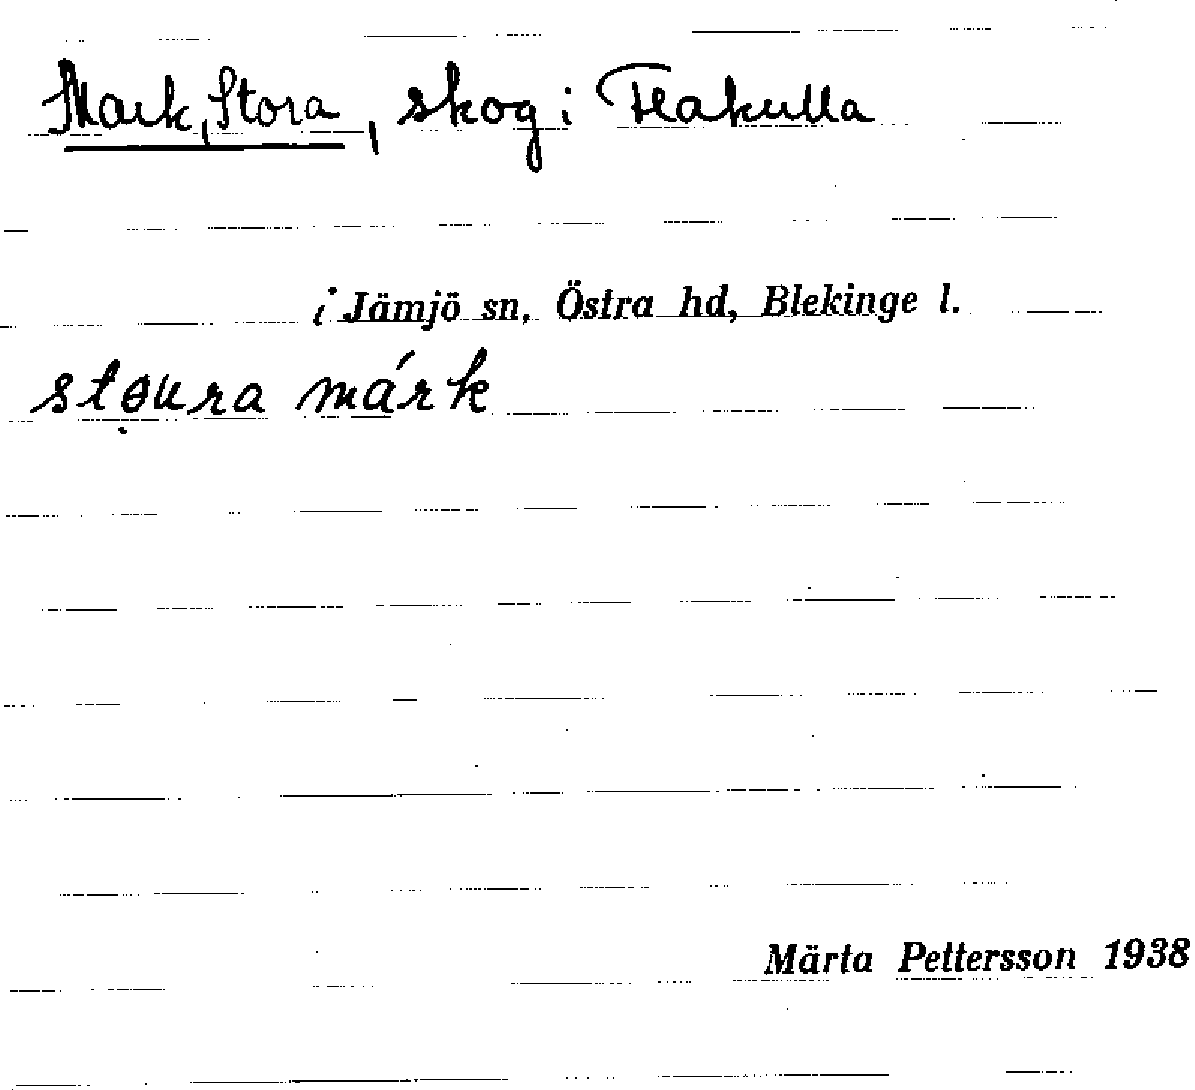 Mark, Stora, skog i Flakulla
i Jämjö sn, Östra hd, Blekinge l.
stɵ̣ura márk
Märta Pettersson 1938